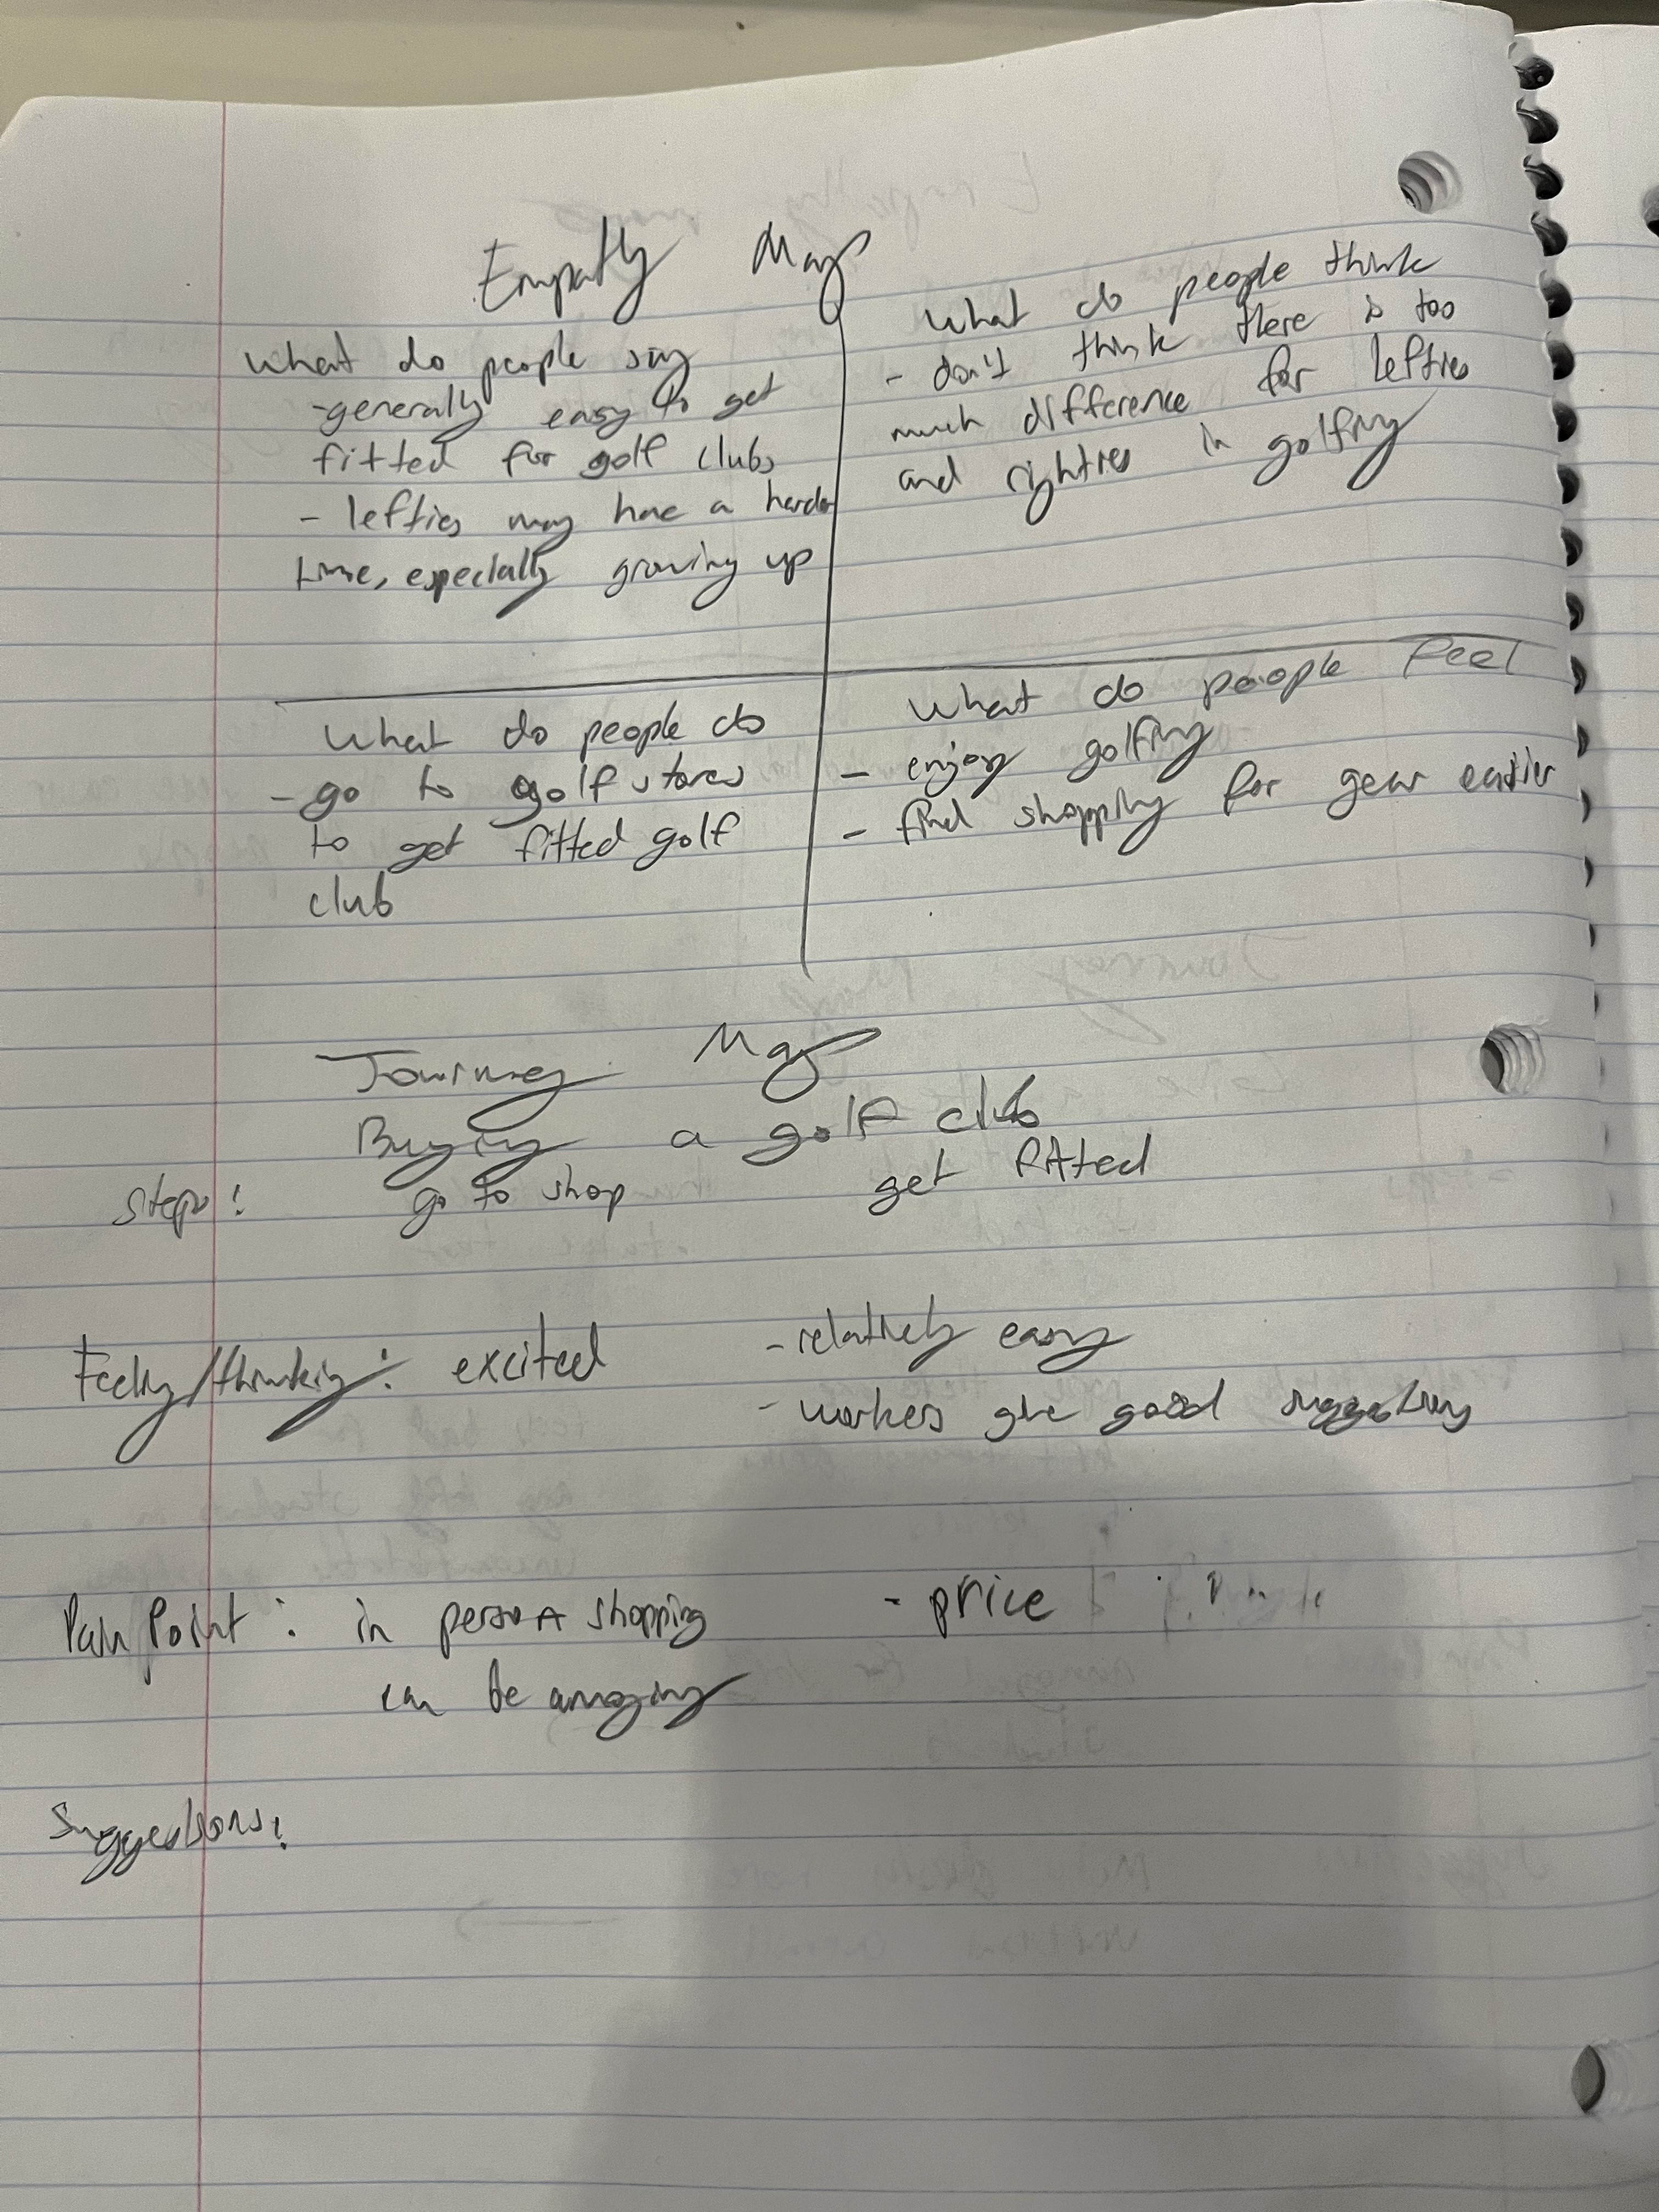 Empathy Map
What do people say
-generally easy to get
fitted for golf clubs
- lefties may have a harder
time, especially growing up
What do people think
- don't think there is too
much difference for lefties
and righties in golfing
What do people do
- go to golf stores
to get fitted golf
club
What do people feel
- enjoy golfing
- find shopping for gear easier
Journey Map
Buying a golf club
Steps: go to shop get fitted
Feeling/thinking: excited - relatively easy
- workers give good suggestions
Pain Point: in person shopping - price
can be annoying
Suggestions: